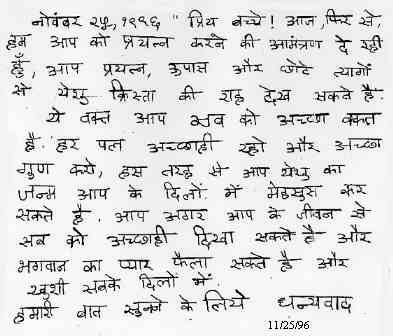 नोवंबर २५, १९९६ " प्रिय बच्चे! आज, फिर से,
हम आप को प्रयत्न करने की आमंत्रण दे रही
हूँ, आप प्रयत्न, उपास और छोटे त्यागों
से येशु क्रिस्ता की राह देख सकते है.
ये वक्त आप सब को अच्छा वक्त
है. हर पल अच्छाही रहो और अच्छा
गुण करो, इस तरह से आप येशु का
जन्म आप के दिलों में मेहसुस कर
सकते है. आप अगर आप के जीवन से
सब को अच्छाही दिखा सकते है और
भगवान का प्यार फैला सकते है और
खुशी सबके दिलों में.
हमारी बात सुनने के लिये धन्यवाद
11/25/96